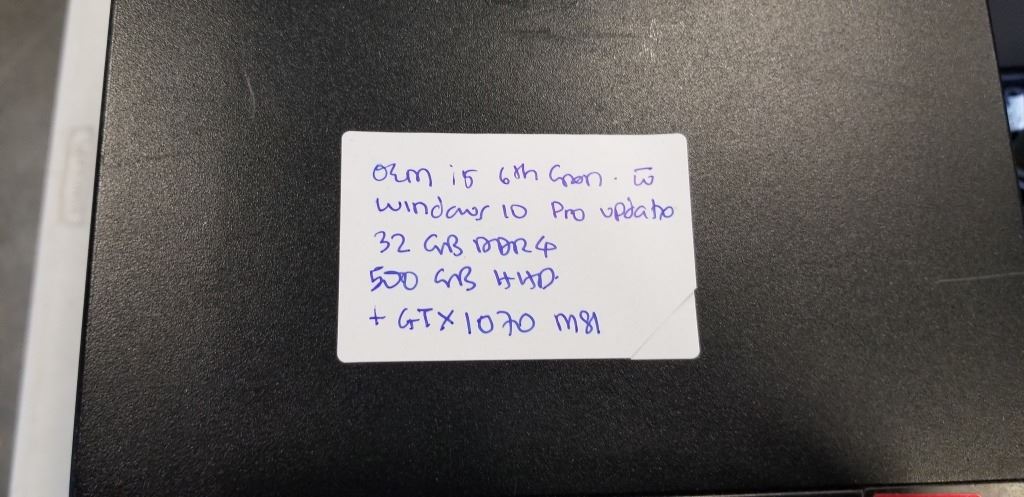 OEM i5 6th Gen. w̅
windows 10 Pro update
32 GB DDR4
500 GB HHD.
+ GTX 1070 MSI